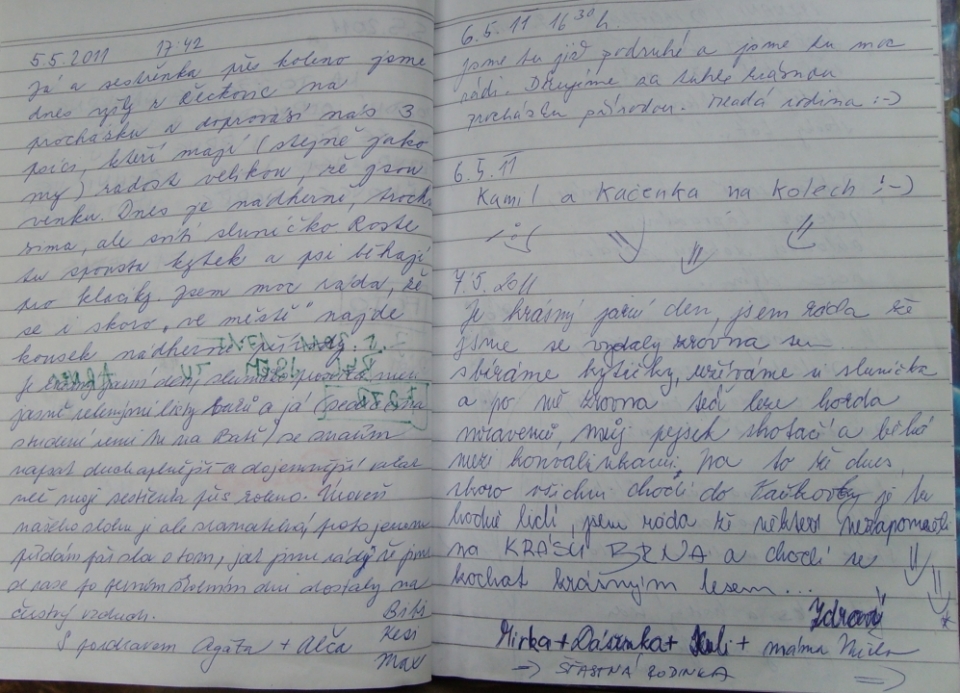 5.5.2011 17:42
Já a sestřenka přes koleno jsme
dnes vyšly z Řečkovic na
procházku a doprovází nás 3
psíci, kteří mají (stejně jako
my) radost velikou, že jsou
venku. Dnes je nádherně, troch
zima, ale svítí sluníčko Roste
tu spousta kytek a psi běhají
pro klacíky. Jsem moc ráda, že
se i skoro „ve městě" najde
kousek nádherné
Je krásný jarní den, sluníčko mezi
jasně zelenými listy a já
studené zemi se snažím
napsat duchaplnější a dojemnější
než moji sestřenka přes koleno. Úroveň
našeho slohu je ale
přidám pár slov o tom, jak jsme rády že jsme
se zase po dni dostaly na
čerstvý vzduch. Bibi
S pozdravem Agáta + Alča Kesi
Max
6.5.11 16 30 h.
jsme tu již podruhé a jsme tu moc
rádi. Děkujeme za tuhle krásnou
procházku přírodou. Mladá rodina :-)
6.5.11
Kamil a Kačenka na kolech ;-)
7.5.2011
Je krásný jarní den, jsem ráda že
jsme se vydaly zrovna sem...
sbíráme kytičky, užíváme si sluníčka
a po mě zrovna teď leze horda
mravenců, můj pejsek skotačí a běhá
mezi konvalinkami, na to že dnes
skoro všichni chodí do je tu
hodně lidí, jsem ráda že někteří nezapomněli
na KRÁSU BRNA a chodí se
kochat krásným lesem...
Zdraví
Mirka + Dášenka + + máma
→ ŠŤASTNÁ RODINKA